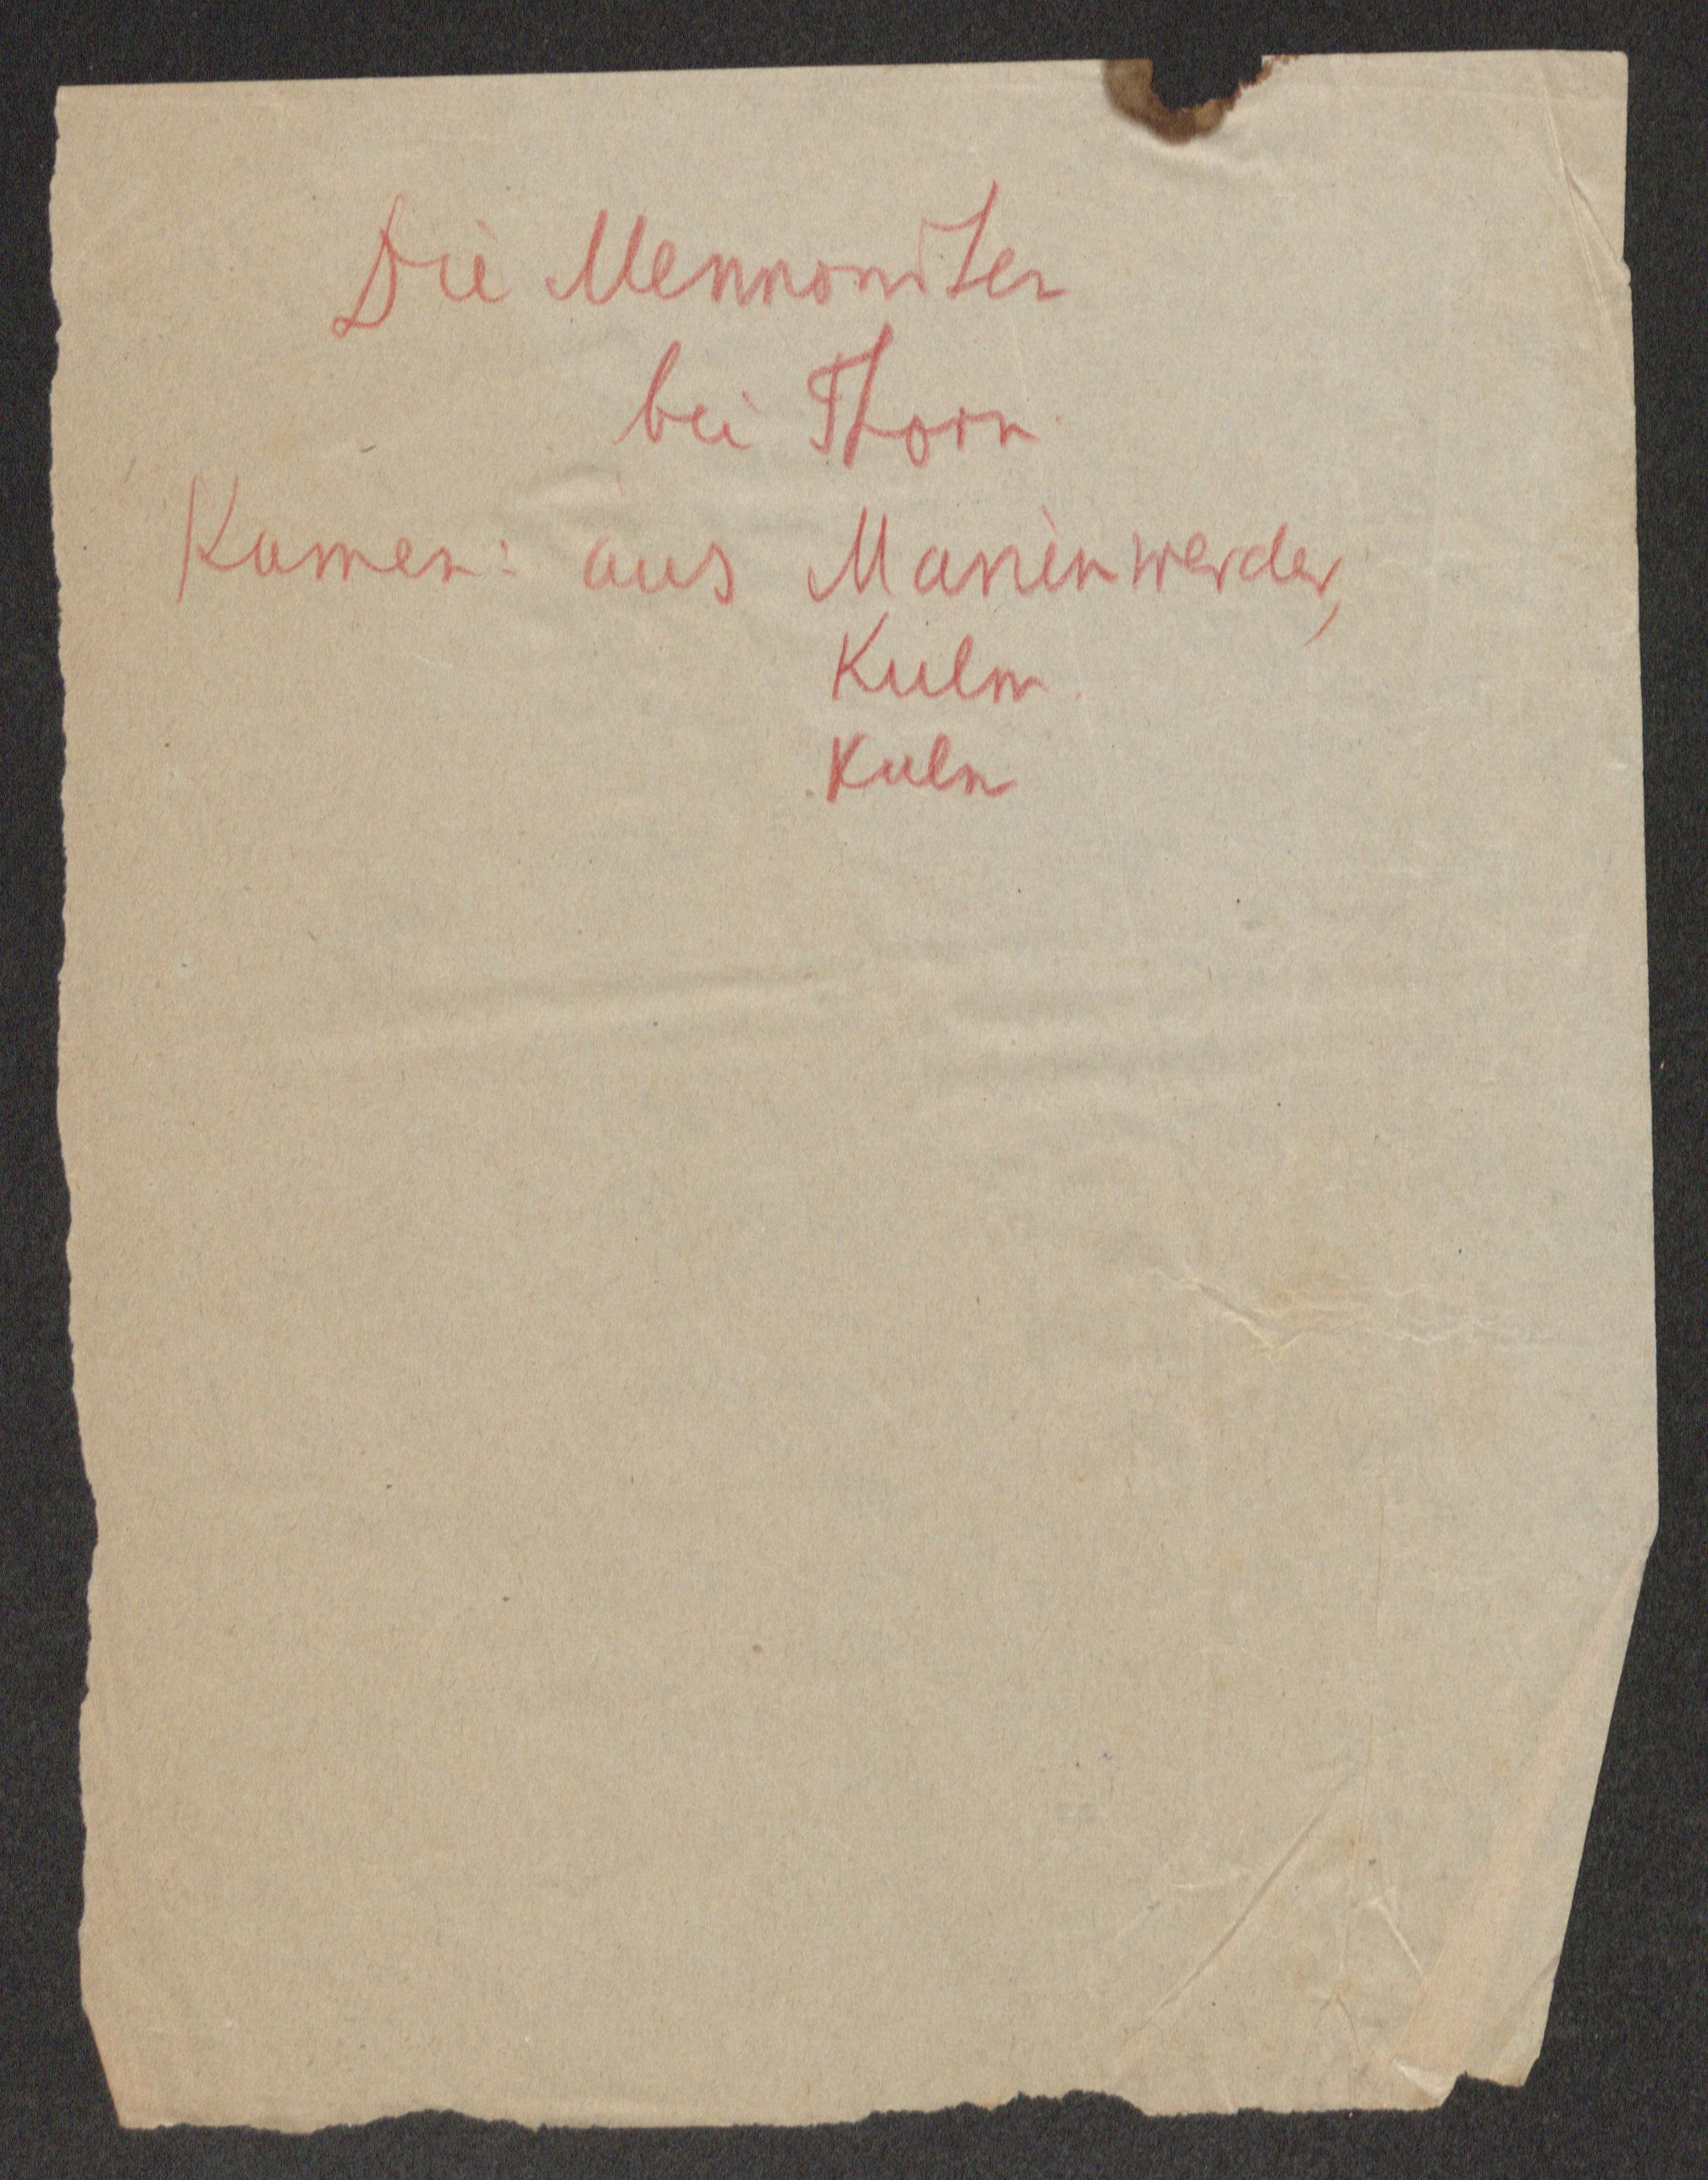 Die Mennoniten
bei Thorn.
Kamen: aus Marienwerder,
Kulm.
Kulm